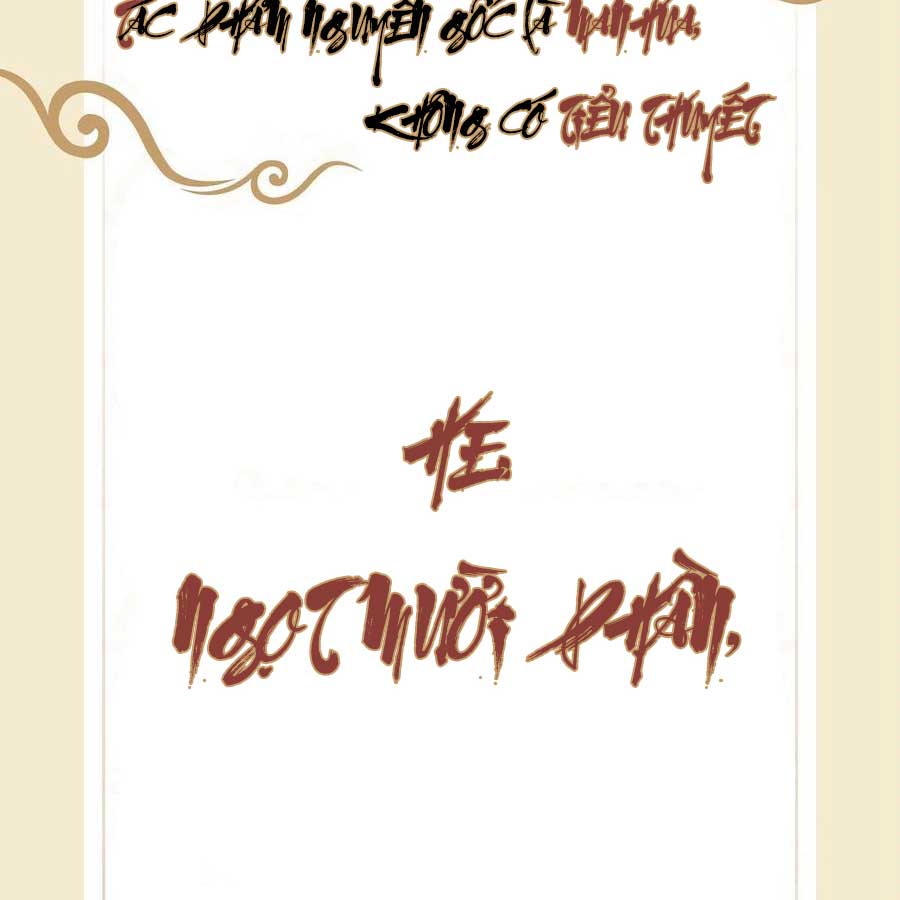 TÁC PHẨM NGUYÊN GỐC LÀ MANHUA,
KHÔNG CÓ TIỂU THUYẾT
HE,
NGỌT MƯỜI PHẦN,